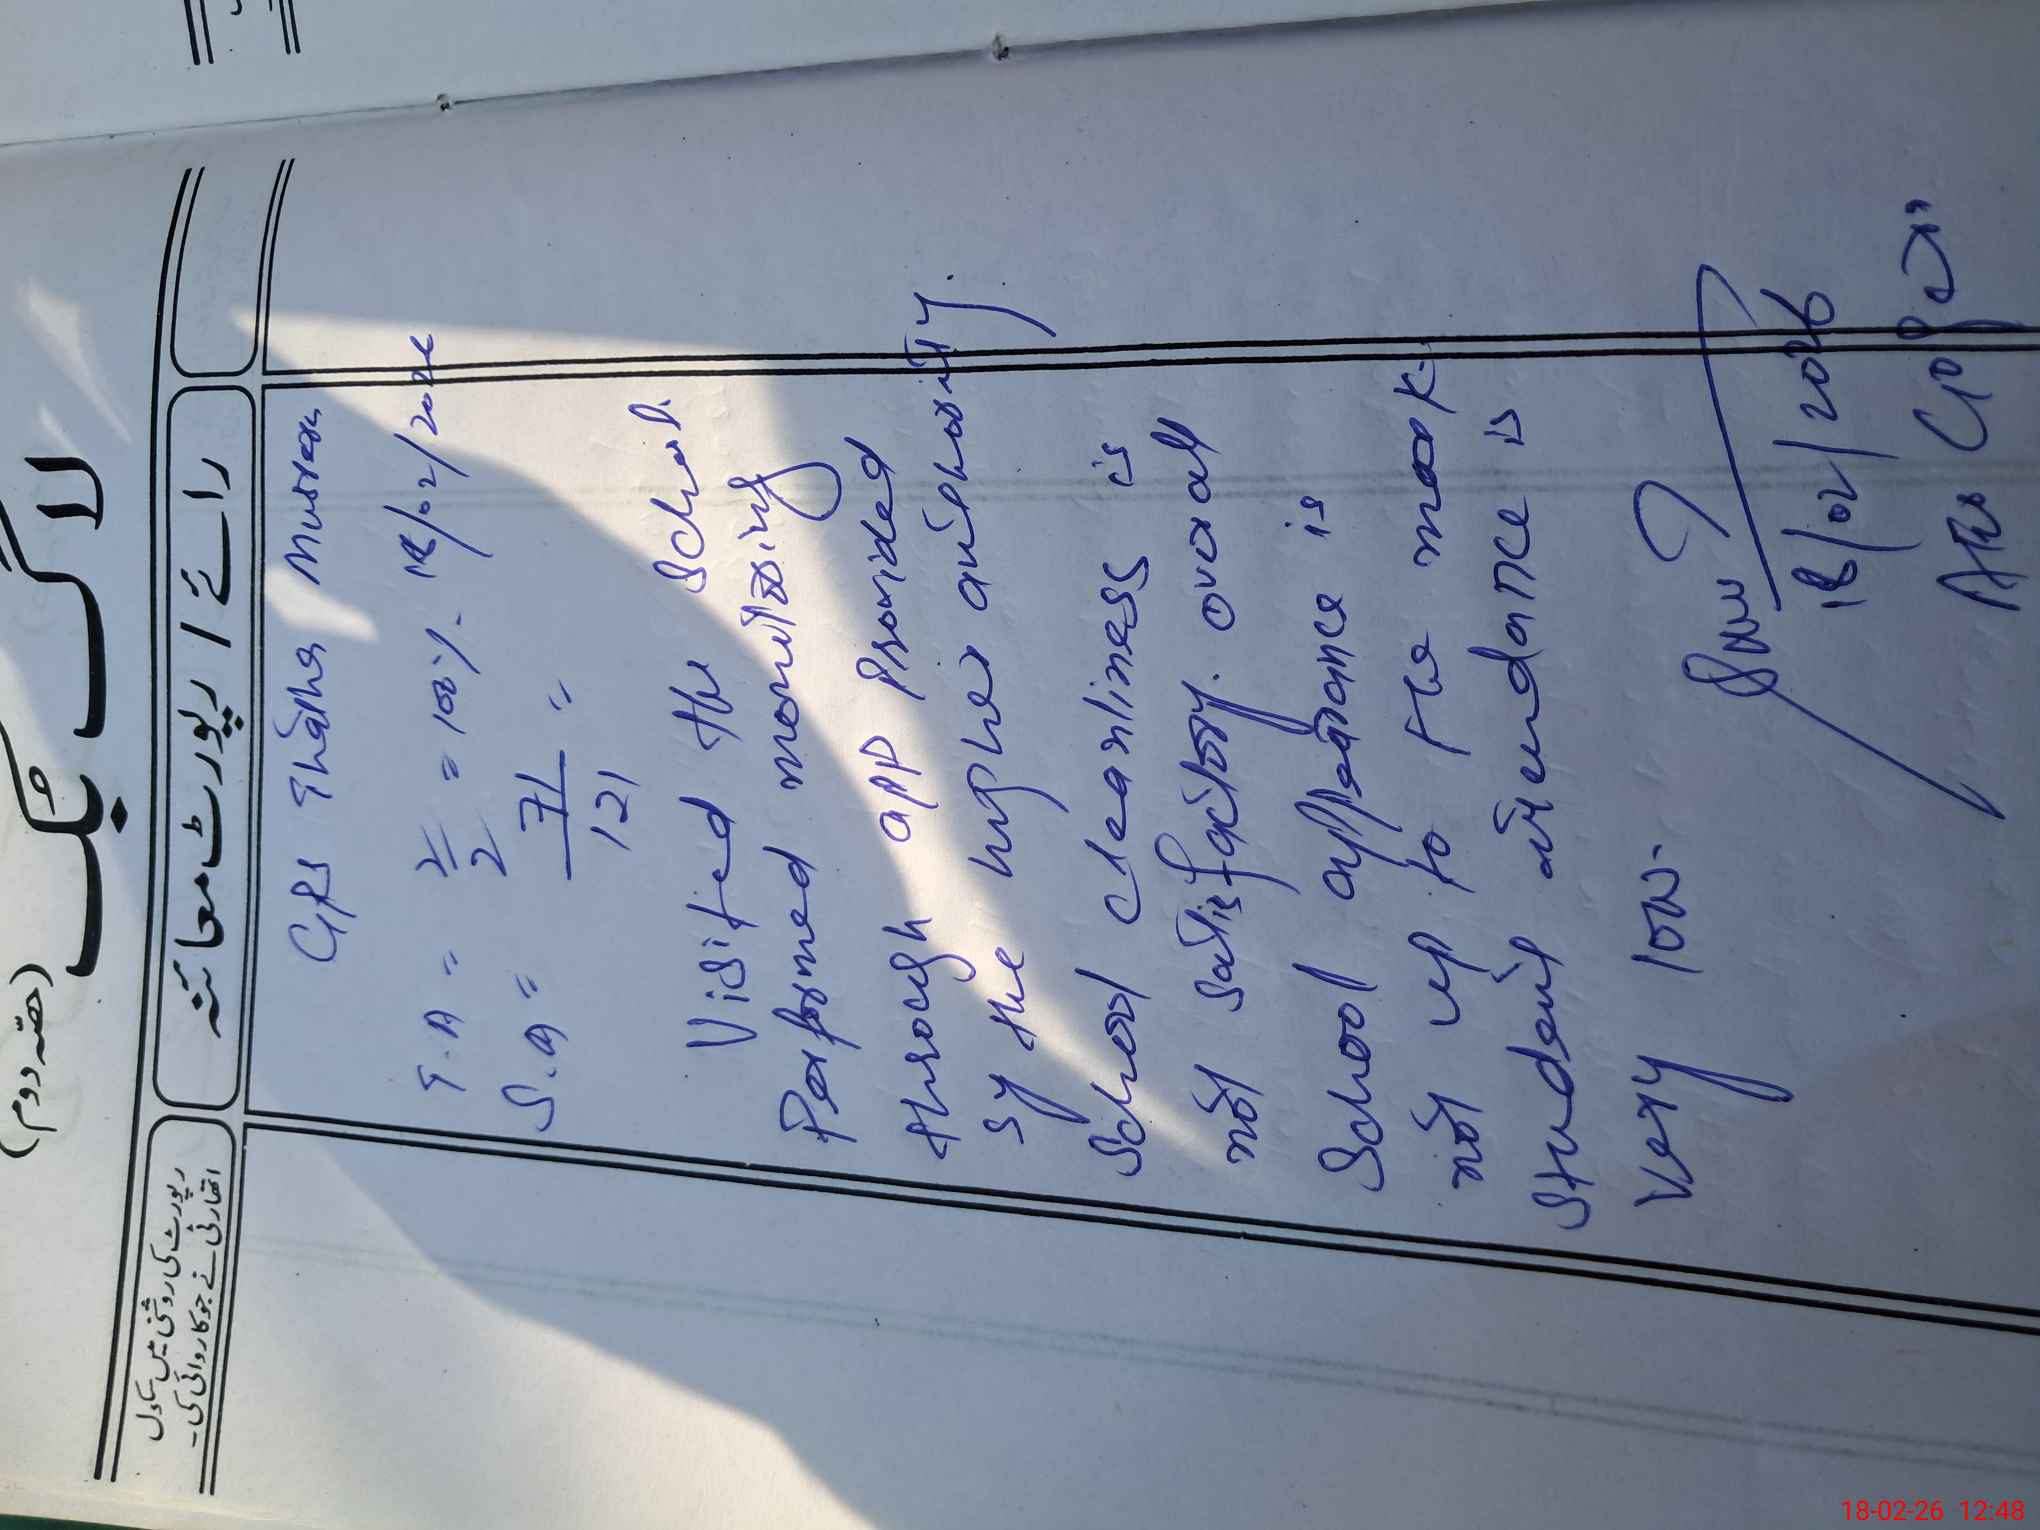 (حصّہ دوم)
لاگ بک
رپورٹ کی روشنی میں سکول
اتھارٹی نے جو کاروائی کی۔
رائے / رپورٹ معائنہ
GPS Thatha
T.A = 2/2 = 100%. 18/02/2026
S.A = 71/121 = "
Visited the School.
Performed monitoring
through app Provided
by the higher authority.
School cleanliness is
not satisfactory. overall
School appearance is
not up to the mark.
Student attendance is
very low.
18/02/2026
18-02-26 12:48